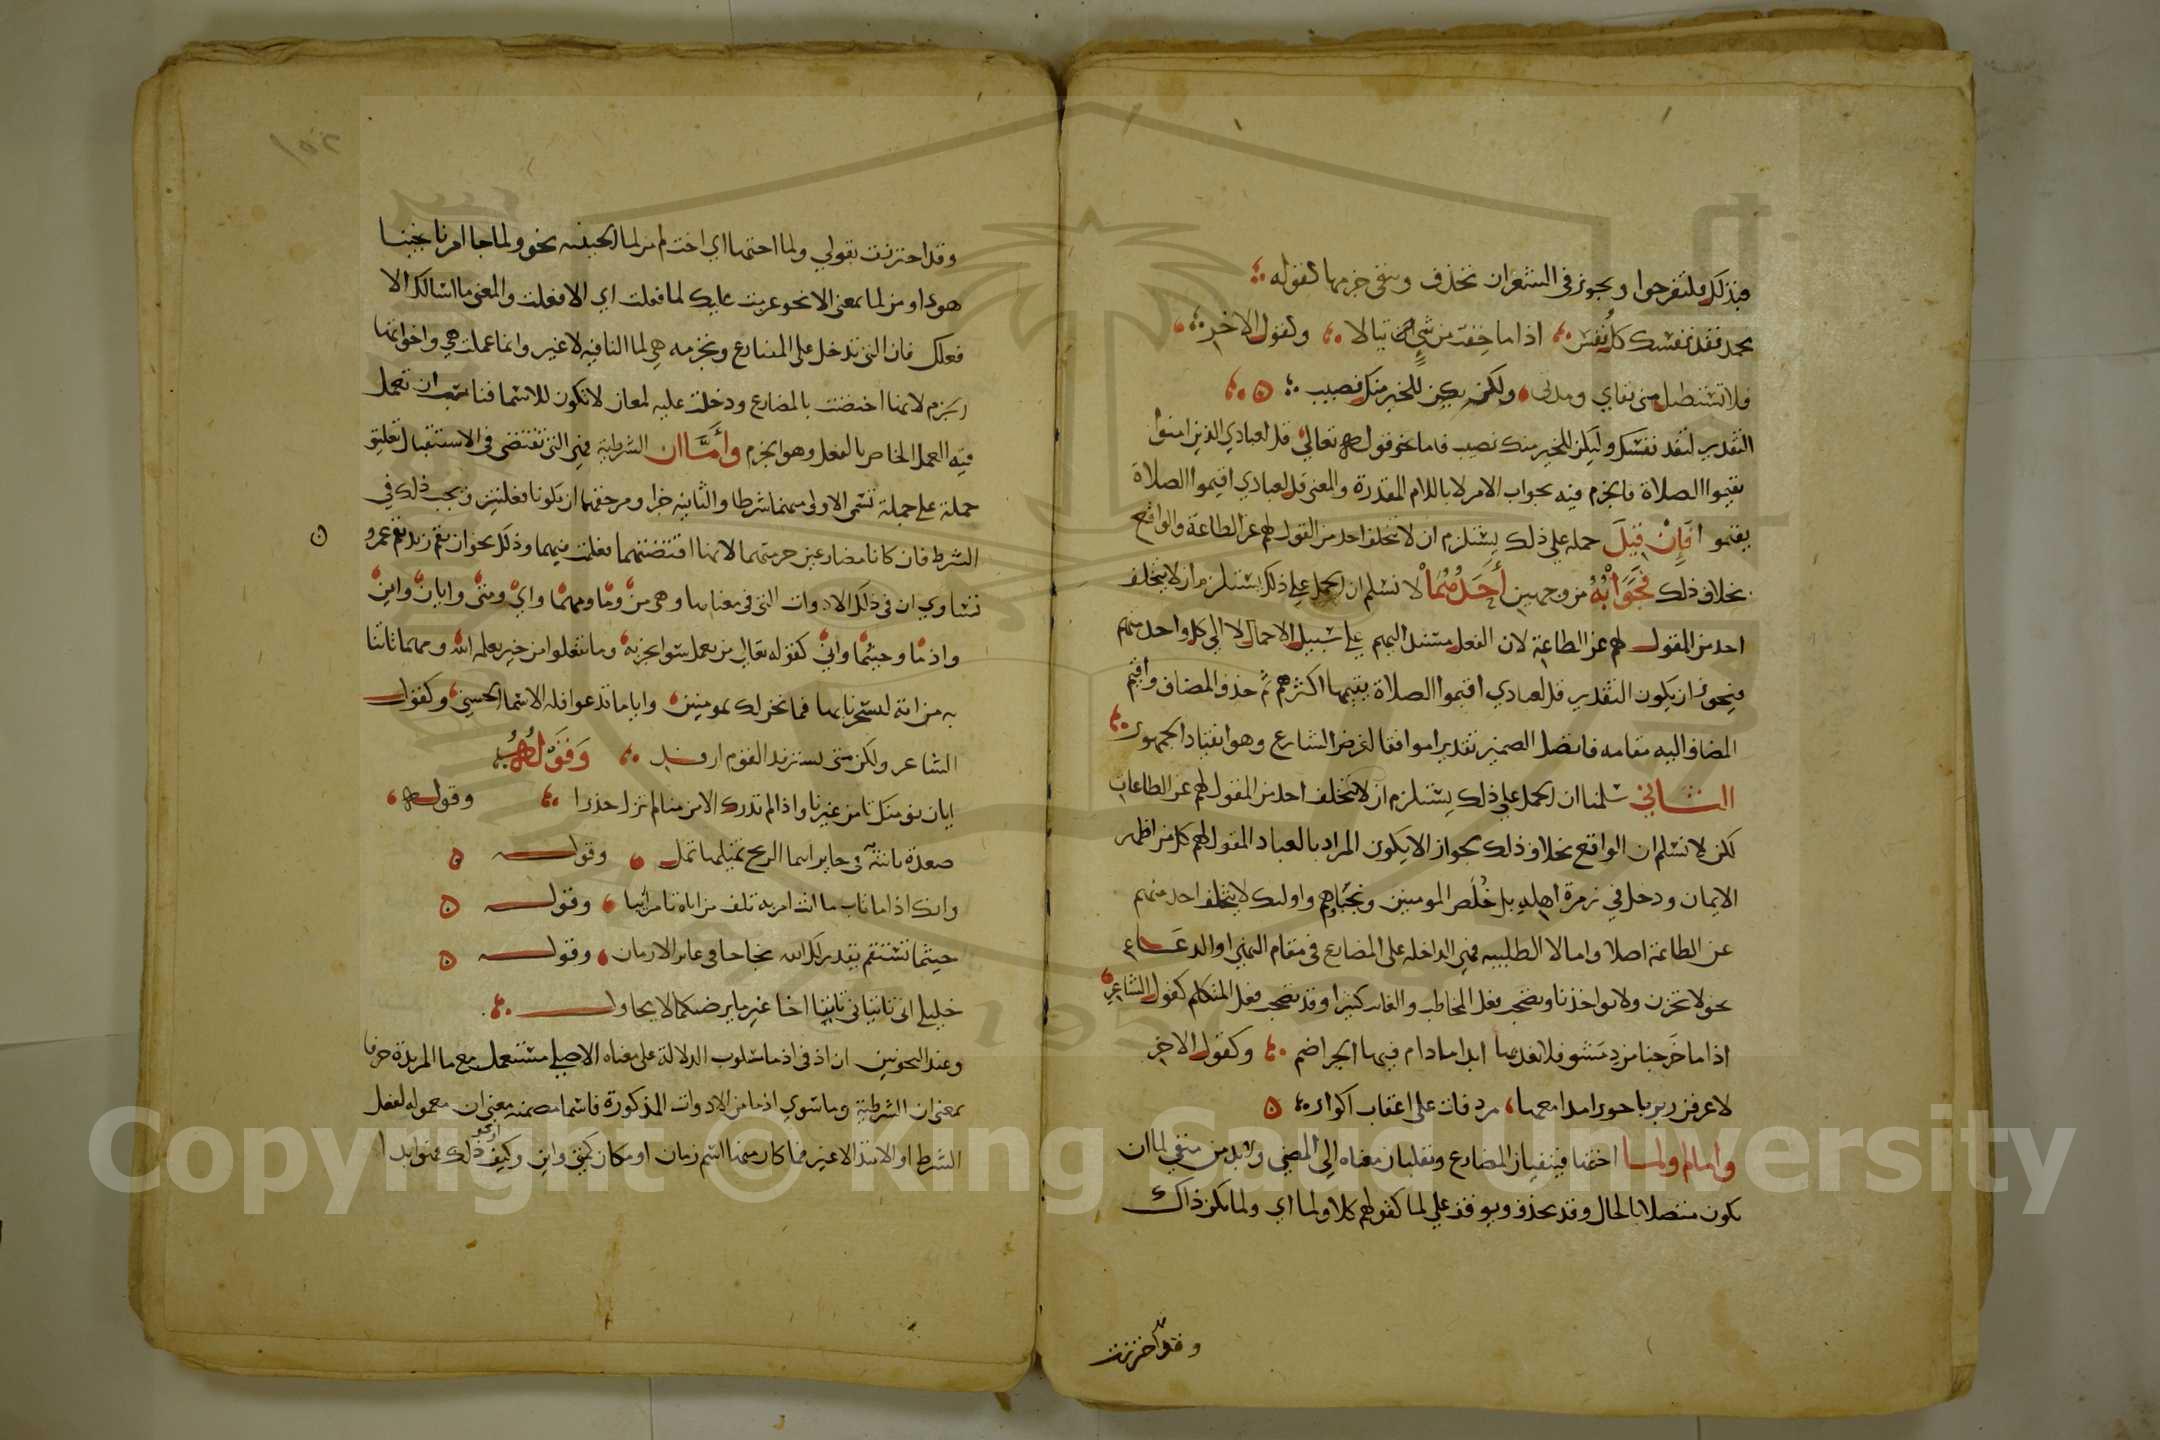 فبذلك فلتفرحوا ويجوز في الشعر ان تحذف ويبقى جزمها كقوله
محمد تفد نفسك كل نفس اذا ما خفت من شيء تبالا وكقول الاخر
فلا تستطل مني بقاي ومدتي ولكن يكن للخير منك نصيب
التقدير لتفد نفسك وليكن للخير منك نصيب فاما نحو قوله تعالى قل لعبادي الذين امنوا
يقيموا الصلاة فالجزم فيه بجواب الامر لا باللام المقدرة والمعنى قل لعبادي اقيموا الصلاة
يقيموا فان قيل حمله على ذلك يستلزم ان لا يتخلف احد من المقول لهم عن الطاعة والواقع
بخلاف ذلك فجوابه من وجهين احدهما لا نسلم ان الحمل على ذلك يستلزم ان لا يتخلف
احد من المقول لهم عن الطاعة لان الفعل مسند اليهم على سبيل الاجمال لا الى كل واحد منهم
فيجوز ان يكون التقدير قل لعبادي اقيموا الصلاة يقيمها اكثرهم ثم حذف المضاف واقيم
المضاف اليه مقامه فاتصل الضمير تقديرا موافقا لغرض الشارع وهو انقياد الجمهور
الثاني سلمنا ان الحمل على ذلك يستلزم ان لا يتخلف احد من المقول لهم عن الطاعات
لكن لا نسلم ان الواقع بخلاف ذلك لجواز الا يكون المراد بالعباد المقول لهم كل من اظهر
الايمان ودخل في زمرة اهله بل خلص المومنين ونجباوهم واولئك لا يتخلف احد منهم
عن الطاعة اصلا واما لا الطلبيه فهي الداخله على المضارع في مقام النهي او الدعاء
نحو لا تحزن ولا تواخذنا ويصحب فعل المخاطب والغائب كثيرا وقد تصحب فعل المتكلم كقول الشاعر
اذا ما خرجنا من دمشق فلا نعد لها ابدا ما دام فيها الجراضم وكقول الاخر
لا اعرفن ربربا حورا مدامعها مردفات على اعقاب اكوار
واما لم ولما اختها فينفيان المضارع ويقلبان معناه الى المضي ولابد من منفي لما ان
يكون متصلا بالحال وقد يحذف ويوقف على لما كقولهم كلا ولما اي ولما يكن ذاك
وقد احترزت
وقد احترزت بقولي ولما اختها اي اخت لم من لما الحينيه نحو ولما جا امرنا نجينا
هودا ومن لما بمعنى الا نحو عزمت عليك لما فعلت اي الا فعلت والمعنى ما اسالك الا
فعلك فان التي تدخل على المضارع وتجزمه هي لما النافيه لا غير وانما عملت هي واخواتها
الجزم لانها اختصت بالمضارع ودخلت عليه لمعان لا تكون للاسما فناسب ان تعمل
فيه العمل الخاص بالفعل وهو الجزم واما ان الشرطية فهي التي تقتضي في الاستقبال تعليق
جملة على جملة تسمى الاولى منهما شرطا والثانيه جزا ومن حقهما ان يكونا فعليتين ويجب ذلك في
الشرط فان كانا مضارعين جزمتهما لانها اقتضتهما فعلت فيهما وذلك نحو ان يقم زيد يقم عمرو
تساوي ان في ذلك الادوات التي في معناها وهي من وما ومهما واي ومتى وايان واين
واذ ما وحيثما وانى كقوله تعالى من يعمل سوا يجز به وما تفعلوا من خير يعلمه الله ومهما تاتنا
به من اية لتسحرنا بها فما نحن لك بمومنين وايا ما تدعوا فله الاسما الحسنى وكقول
الشاعر ولكن متى يسترفد القوم ارفد وقوله
ايان نومنك تامن غيرنا واذا لم تدرك الامن منا لم تزل حذرا وقوله
صعدة نابتة في حاير اينما الريح تميلها تمل وقوله
وانك اذا ما تات ما انت امر به تلف من اياه تامر اتيا وقوله
حيثما تستقم يقدر لك الله نجاحا في غابر الازمان وقوله
خليلي انى تاتياني تاتيا اخا غير ما يرضيكما لا يحاول
وعند النحويين ان اذ في اذ ما مسلوب الدلالة على معناه الاصلي مستعمل مع ما المزيدة حرفا
بمعنى ان الشرطية وما سوى اذ ما من الادوات المذكورة فاسما مضمنه معنى ان معموله لفعل
الشرط او الابتدا لا غير فما كان منها اسم زمان او مكان كمتى واين وكيف ذلك فهو ابدا